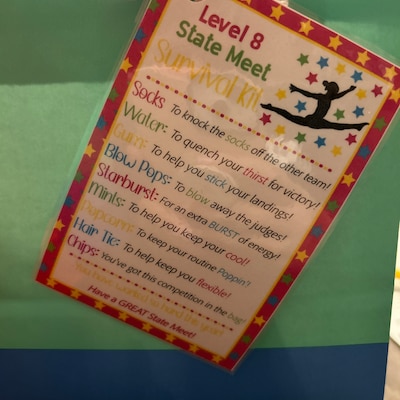 Level 8
State Meet
Survival Kit
Socks: To knock the socks off the other team!
Water: To quench your thirst for victory!
Gum: To help you stick your landings!
Blow Pops: To blow away the judges!
Starburst: For an extra BURST of energy!
Mints: To help you keep your cool!
Popcorn: To keep your routine Poppin'!
Hair Tie: To help keep you flexible!
Chips: You've got this competition in the bag!
You have worked so hard the year!
Have a GREAT State Meet!